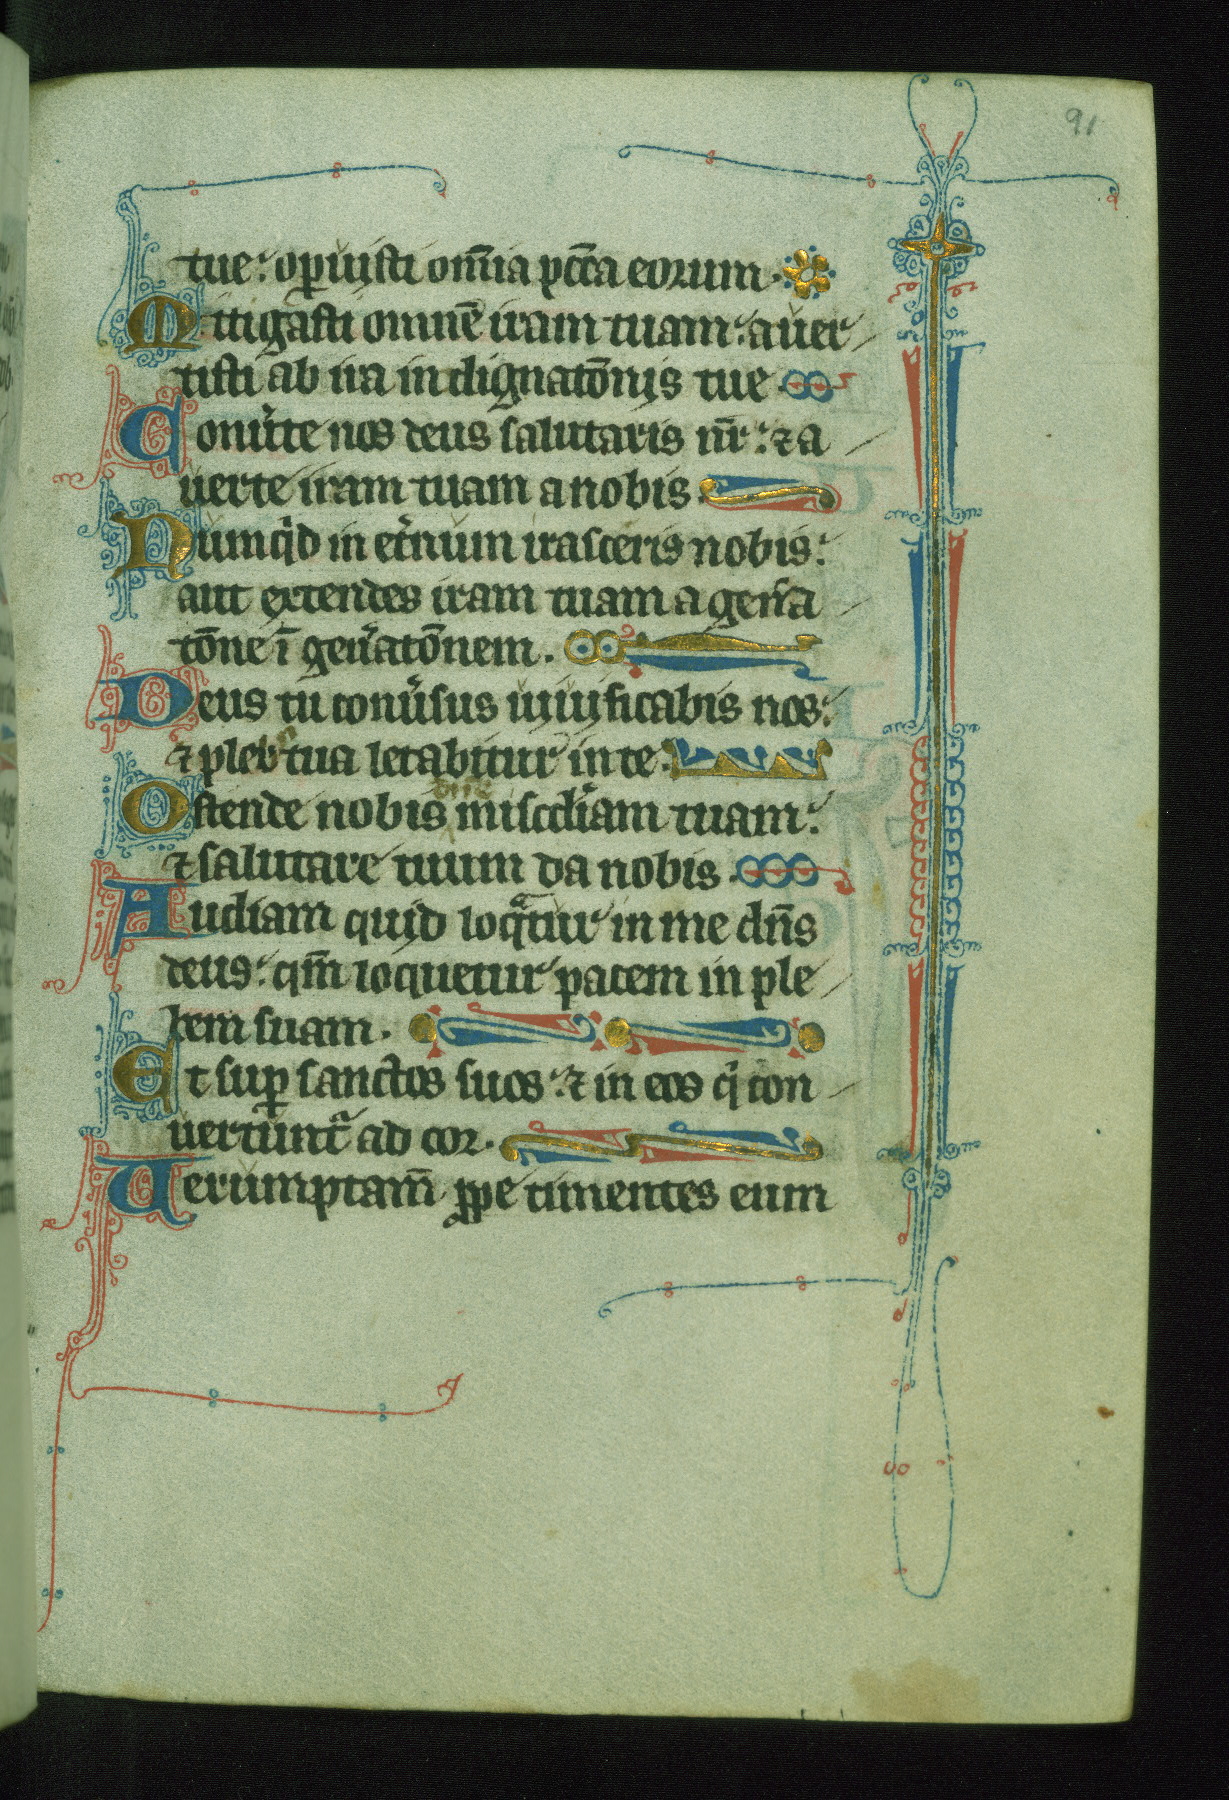 91
tue: op̲uisti om̄ia pcc̄a eorum.
Mitigasti omnē iram tuam: auer
tisti ab ira indignatōnis tue
Conu̓te nos deus salutaris nr̄: ⁊ a
uerte iram tuam a nobis.
Numqͥd in et̓num irasceris nobis:
aut extendes iram tuam a gen̓a
tōne ī gen̓atōnem.
Deus tu conu̓sus uiuificabis nos:
⁊ plebs tua letabitur in te.
Ostende nobis dn̄e misc̄diam tuam:
⁊ salutare tuum da nobis.
Audiam quid loqᷓtur in me dn̄s
deus: qm̄ loquetur pacem in ple
bem suam.
Et sup̲ sanctos suos: ⁊ in eos qͥ con
uertunt᷑ ad cor.
Uerumptam̄ ꝓpe timentes eum